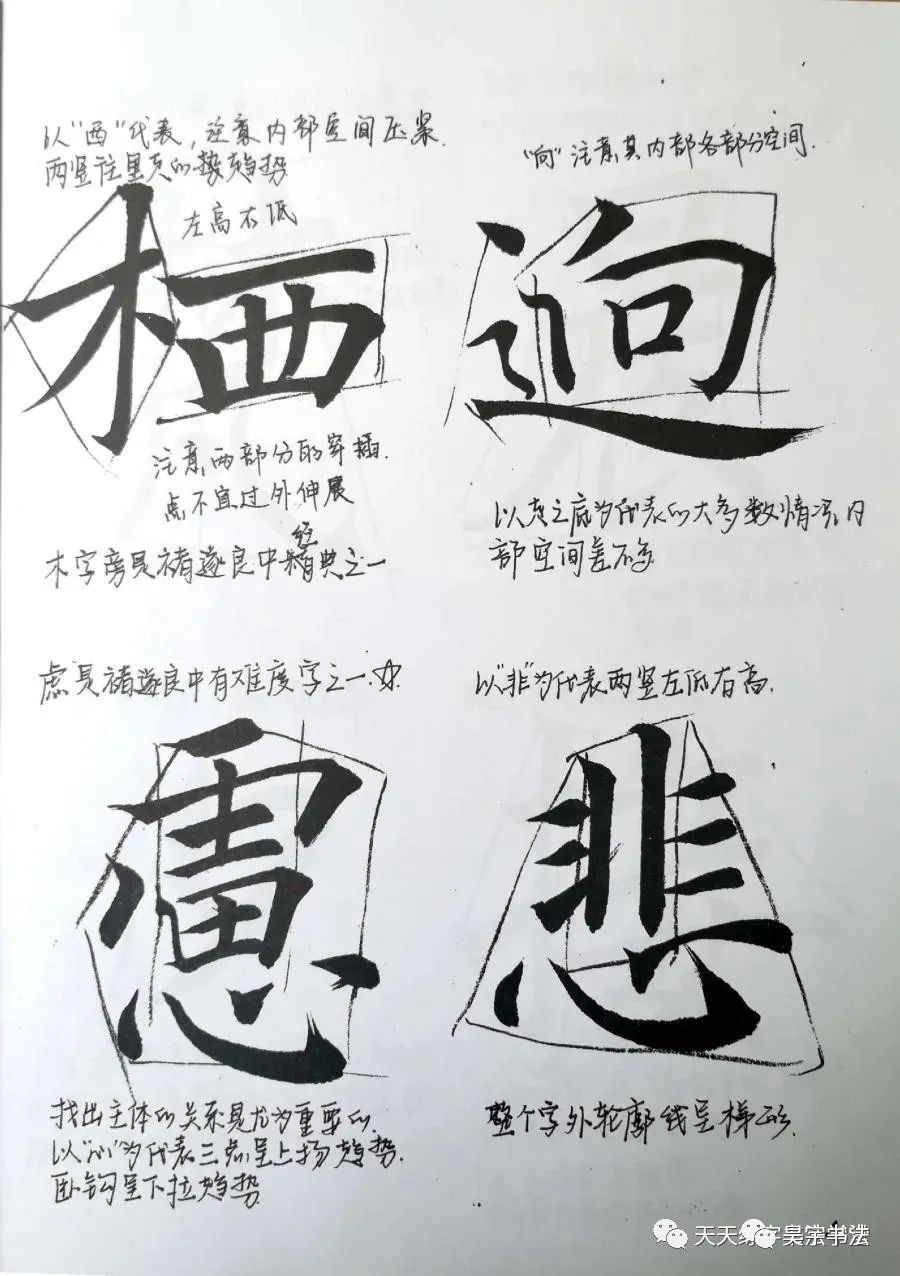 以“西”代表，注意内部空间压紧.
两竖往里克的势趋势
左高右低
栖
注意两部分的穿插.
点不宜过外伸展
经
木字旁是褚遂良中精典之一
“向”注意其内部各部分空间.
迥
以走之底为代表的大多数情况，内
部空间差不多
虑是褚遂良中有难度字之一.
慮
找出主体的关系是尤为重要的.
以“心”为代表三点呈上扬趋势.
卧钩呈下拉趋势
以“非”为代表两竖左低右高.
悲
整个字外轮廓线呈梯形.
天天练字吴宗书法